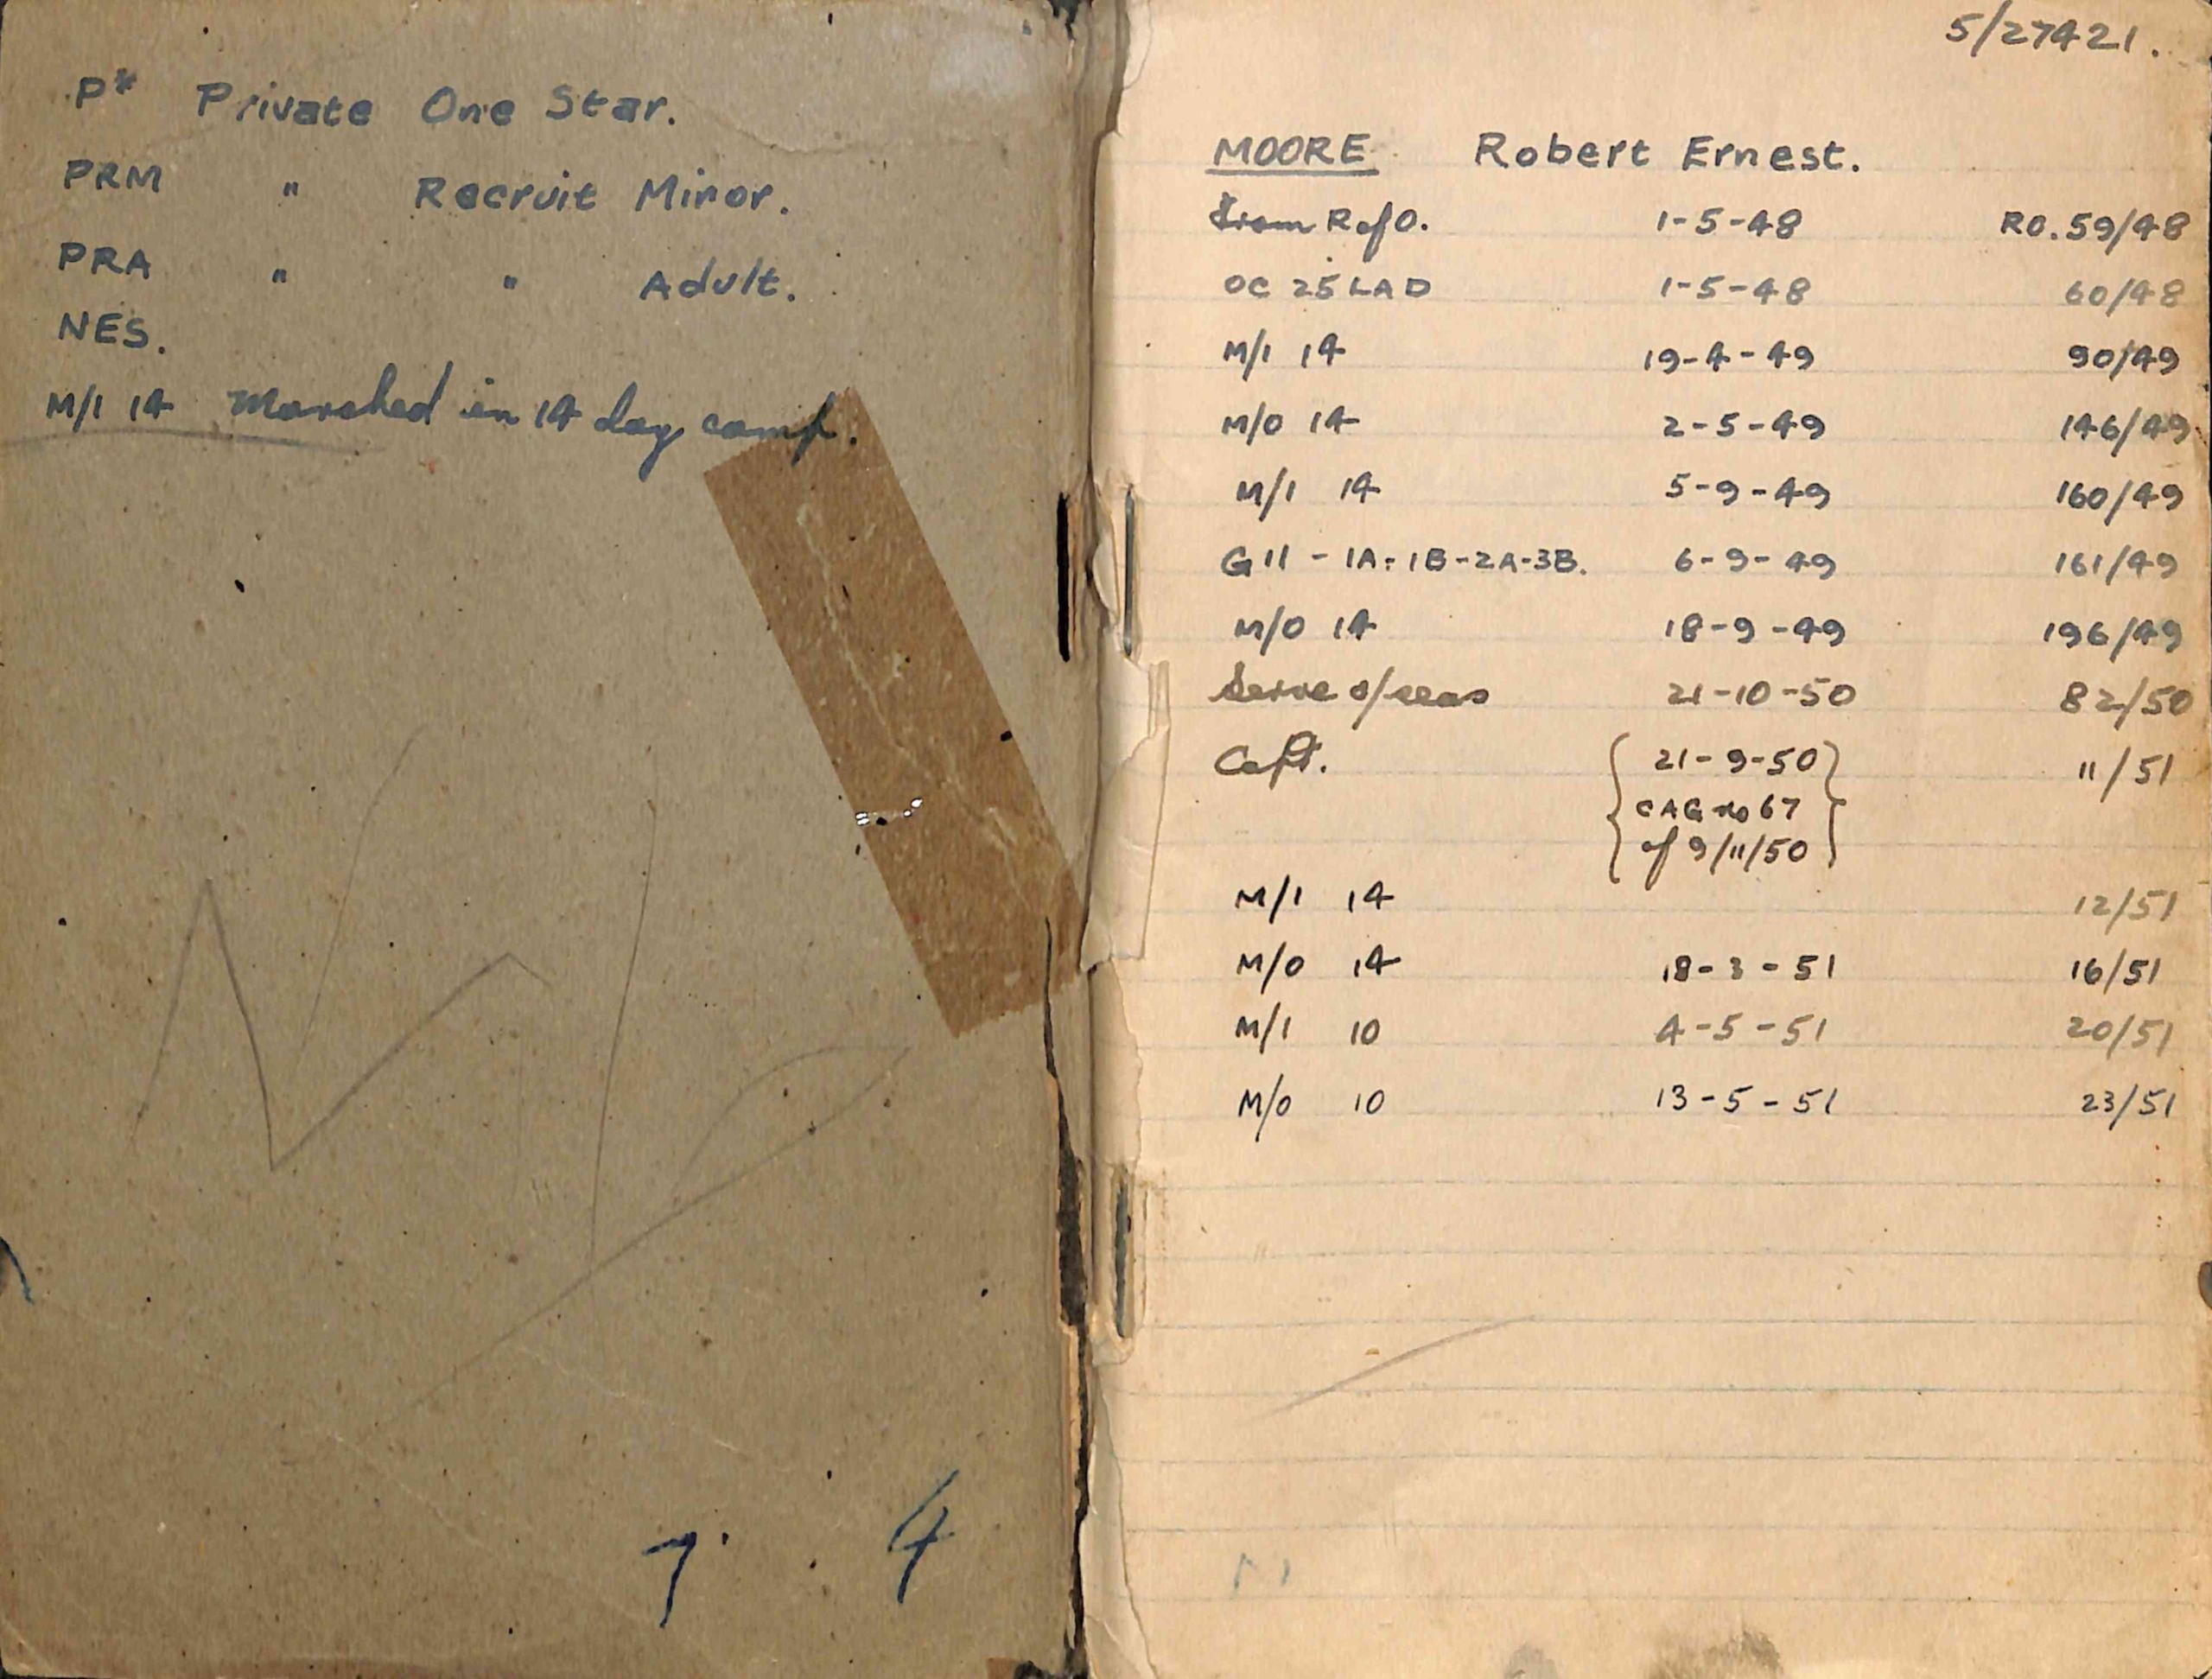 P* Private One Star.
PRM " Recruit Minor.
PRA " " Adult.
NES.
M/I 14 Marched in 14 day camp.
7 . 4
5/27421.
MOORE Robert Ernest.
From R of O. 1-5-48 RO. 59/48
OC 25 LAD 1-5-48 60/48
M/I 14 19-4-49 90/49
M/O 14 2-5-49 146/49
M/I 14 5-9-49 160/49
G11 - 1A-1B-2A-3B. 6-9-49 161/49
M/O 14 18-9-49 196/49
Serve o/seas 21-10-50 82/50
Capt. { 21-9-50 } 11/51
CAG no 67
of 9/11/50
M/I 14 12/51
M/O 14 18-3-51 16/51
M/I 10 4-5-51 20/51
M/O 10 13-5-51 23/51